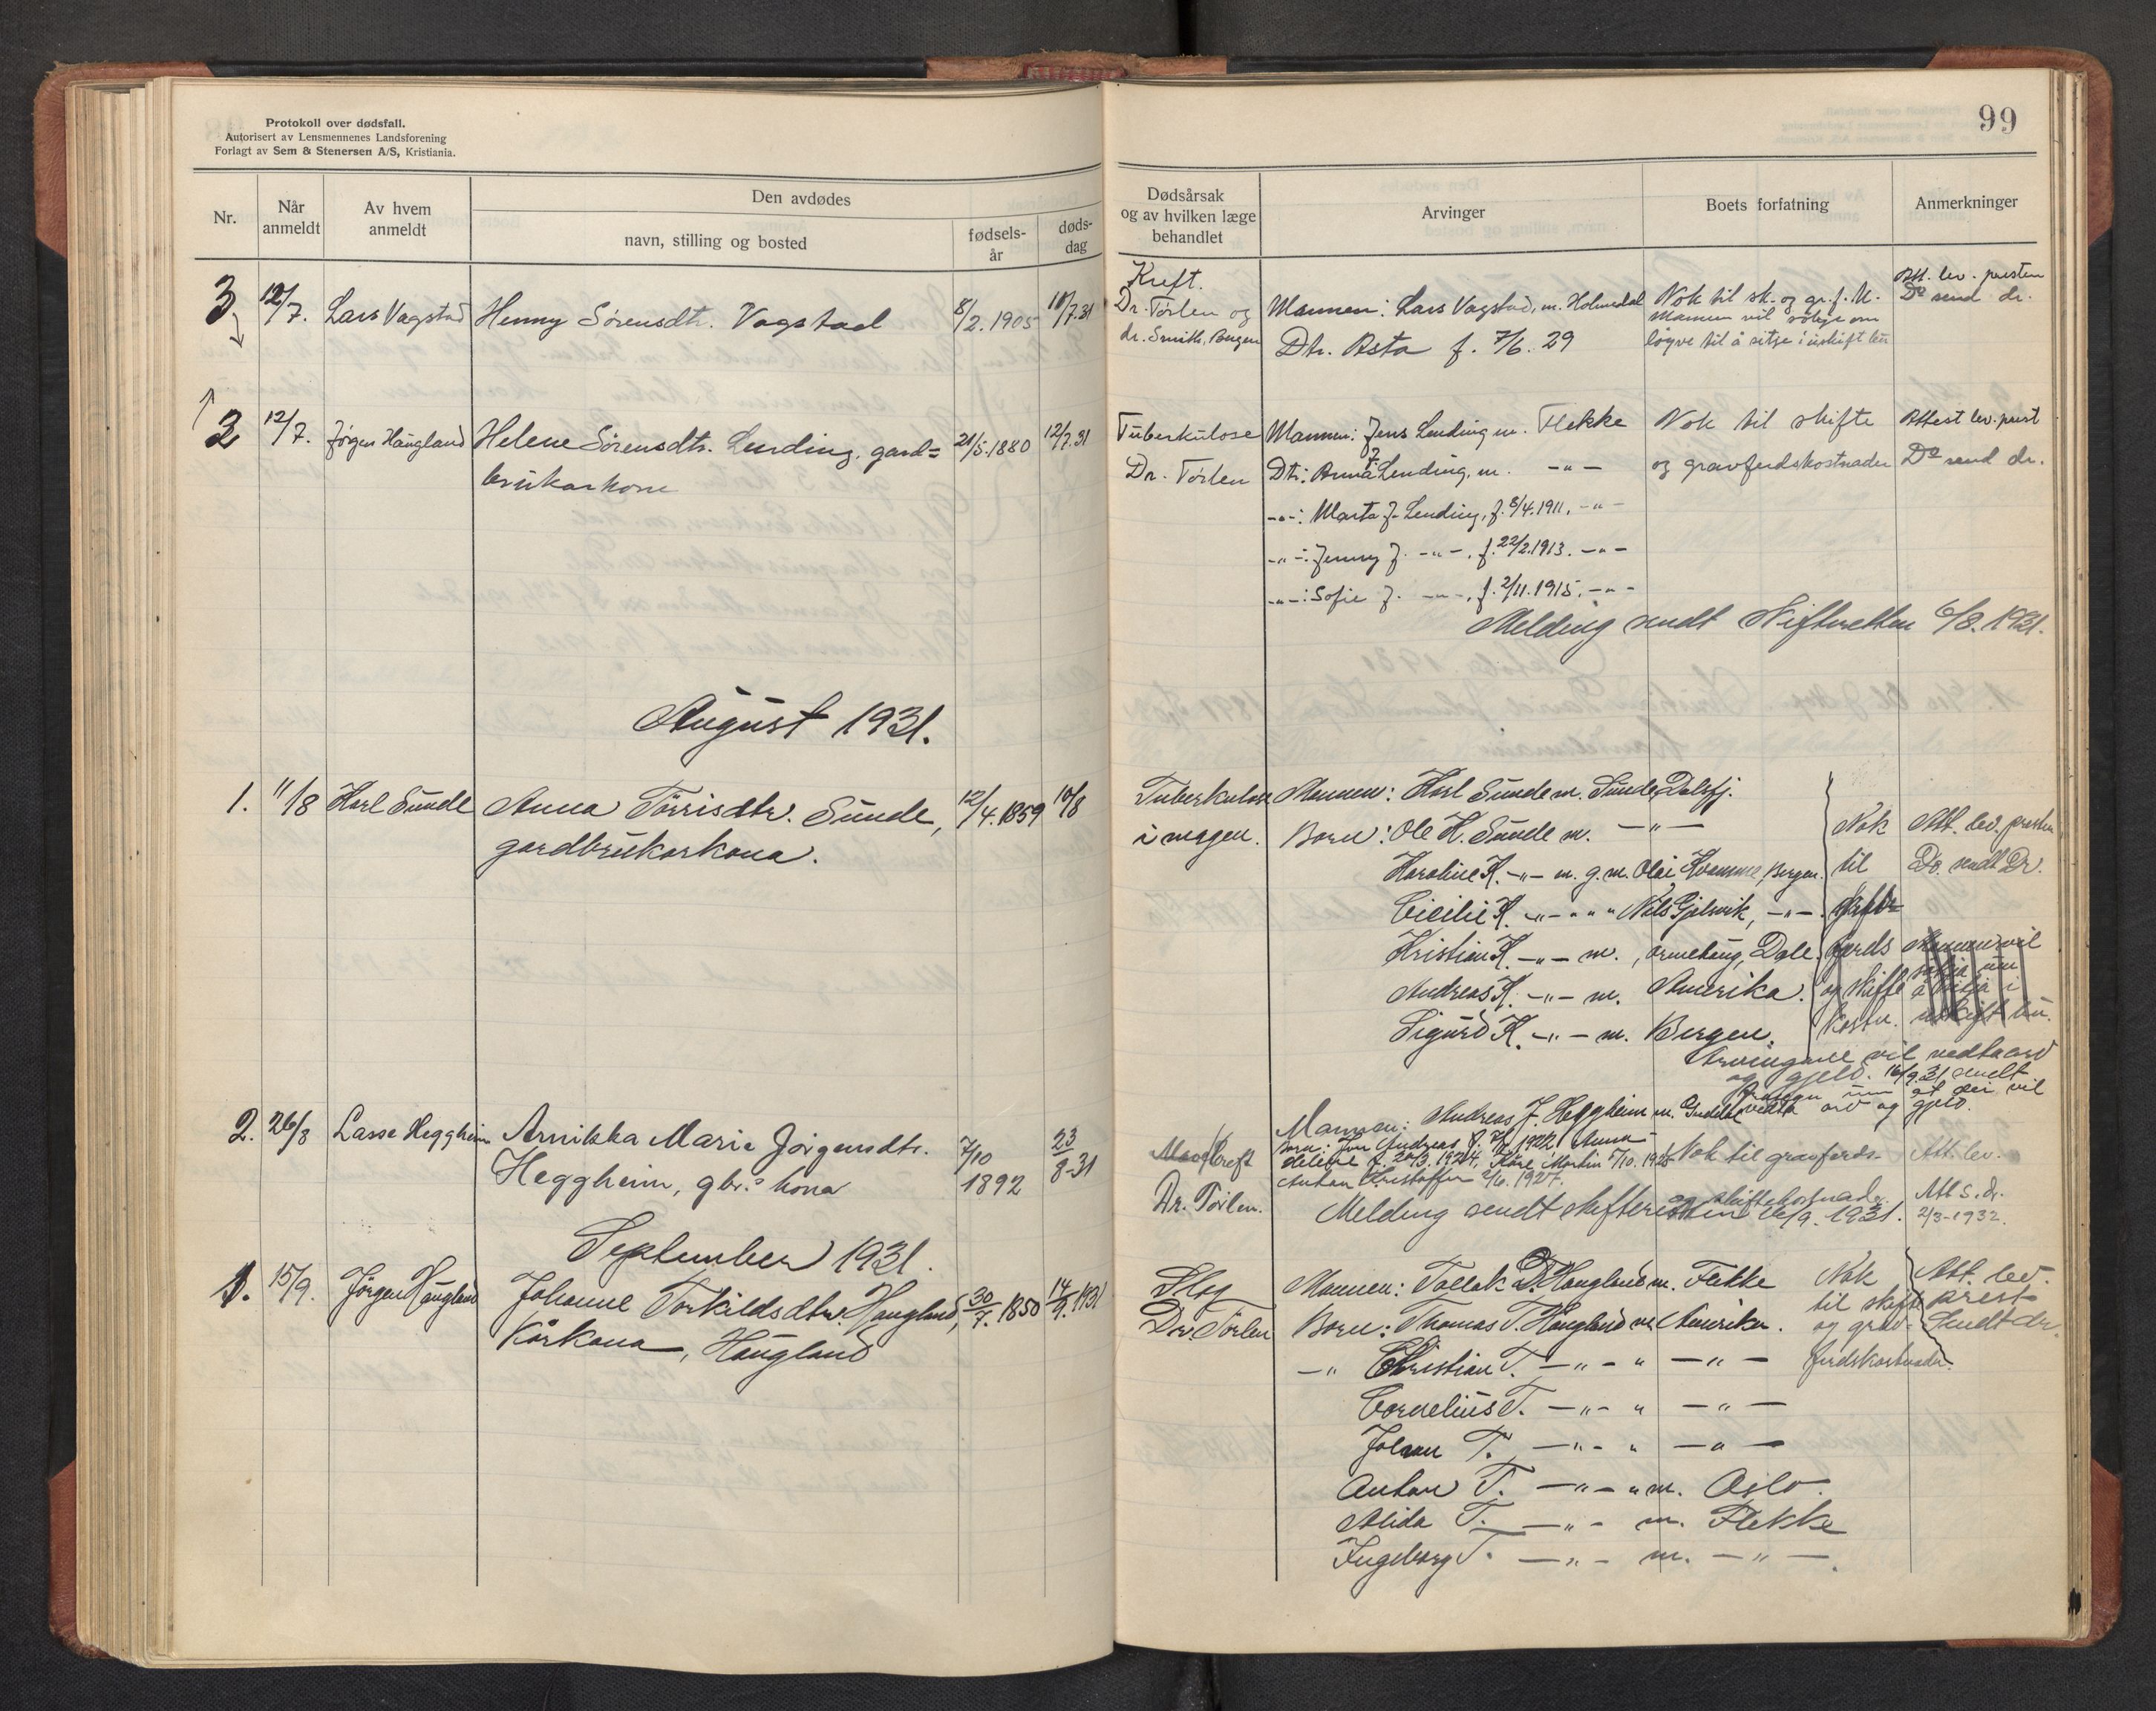 Protokoll over dødsfall.
Autorisert av Lensmennenes Landsforening
Forlagt av Sem & Stenersen A/S, Kristiania.
Nr.
Når anmeldt
Av hvem anmeldt
Den avdødes
navn, stilling og bosted
fødselsår
dødsdag
3 12/7. Lars Vagstad Henny Sörensdtr. Vagstad 8/2. 1905 10/7.31
2 12/7. Jörgen Haugland Helene Sörensdtr. Lending, gard=
brukarkone 21/5.1880 12/7.31
August 1931.
1. 11/8 Karl Sunde Anna Törrisdtr. Sunde, 12/4.1859 10/8
gardbrukarkona.
2. 26/8 Lasse Heggheim Annikka Marie Jörgensdtr. 7/10 23/8-31
Heggheim, gbr.s kona 1892
September 1931.
1. 15/9. Jörgen Haugland Johanne Torkildsdtr. Haugland, 30/7. 1850 14/9.1931
Kårkona, Haugland
99
Dødsårsak
og av hvilken læge
behandlet
Arvinger
Boets forfatning
Anmerkninger
Kreft.
Dr. Törlen og
dr. Smith, Bergen
Mannen: Lars Vagstad, m. Holmedal
Dtr. Asta f. 7/6. 29
Nok til sk. og gr.f. U.
Mannen vil sökje om
löyve til å sitje i uskift bu
Att. lev. presten
Do send dr.
Tuberkulose
Dr. Törlen
Mannen: Jens Lending m. Flekke
Dtr: Anna J. Lending, m. -"-
-"-: Marta J. Lending, f. 8/4.1911. -"-
-"-: Jenny J. -"-, f. 22/2.1913. -"-
-"-: Sofie J. -"-, f. 2/11.1915. -"-
Nok til skifte
og gravferdskostnader
Attest lev. prest
Do send dr.
Melding sendt Skifteretten 6/8. 1931.
Tuberkulose
i magen.
Mannen: Karl Sunde m. Sunde, Dalsfj.
Born: Ole K. Sunde m. -"-
Karoline K. -"- m. g. m. Olai Kvamme, Bergen.
Cicilie K. -"- " " Nils Gjelsvik, -"-.
Kristian K. -"- m., Dale.
Andreas K. -"- m. Amerika.
Sigurd K. -"- m. Bergen.
Nok
til
ferds
og skifte
kostn.
Att. lev. presten
Do. sendt Dr.
Mannen vil
sökja um
å sitja i
uskift bu.
Arvingane vil vedta arv
og gjeld. 16/9.31 sendt
um at dei vil
vedta arv og gjeld.
Kreft
Dr. Törlen.
Mannen: Andreas J. Heggheim m.
Born: Andreas f. 1922 Anna
Helene f. 20/3. 1924, Kåre Martin 5/10. 1925
Anton Kristoffer 1927.
Nok til gravferds-
og skiftekostnader.
Att. lev.
Att s. dr.
2/3-1932.
Melding sendt skifteretten 16/9. 1931.
Slag
Dr. Törlen
Mannen: Tollak D. Haugland m. Flekke
Born: Thomas T. Haugland m. Amerika.
-" Christian T. -"- " -"-
Cornelius T. -"- " -"-
Johan T. -"- " -"-
Anton T. -"- " m. Oslo.
Alida T. -"- m. Flekke
Ingeborg T. -"- m. -"-.
Nok
til skifte
og grav-
ferdskostnader.
Att. lev.
prest
Sendt dr.